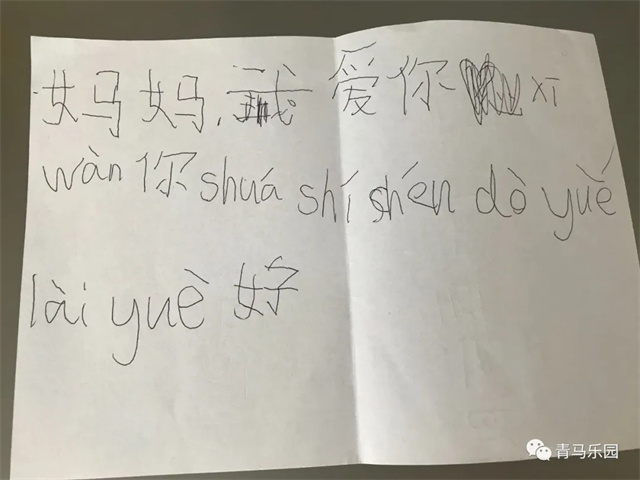 妈妈,我爱你 xī
wàn 你 shuá shí shén dò yuě
lài yuè 好
青马乐园